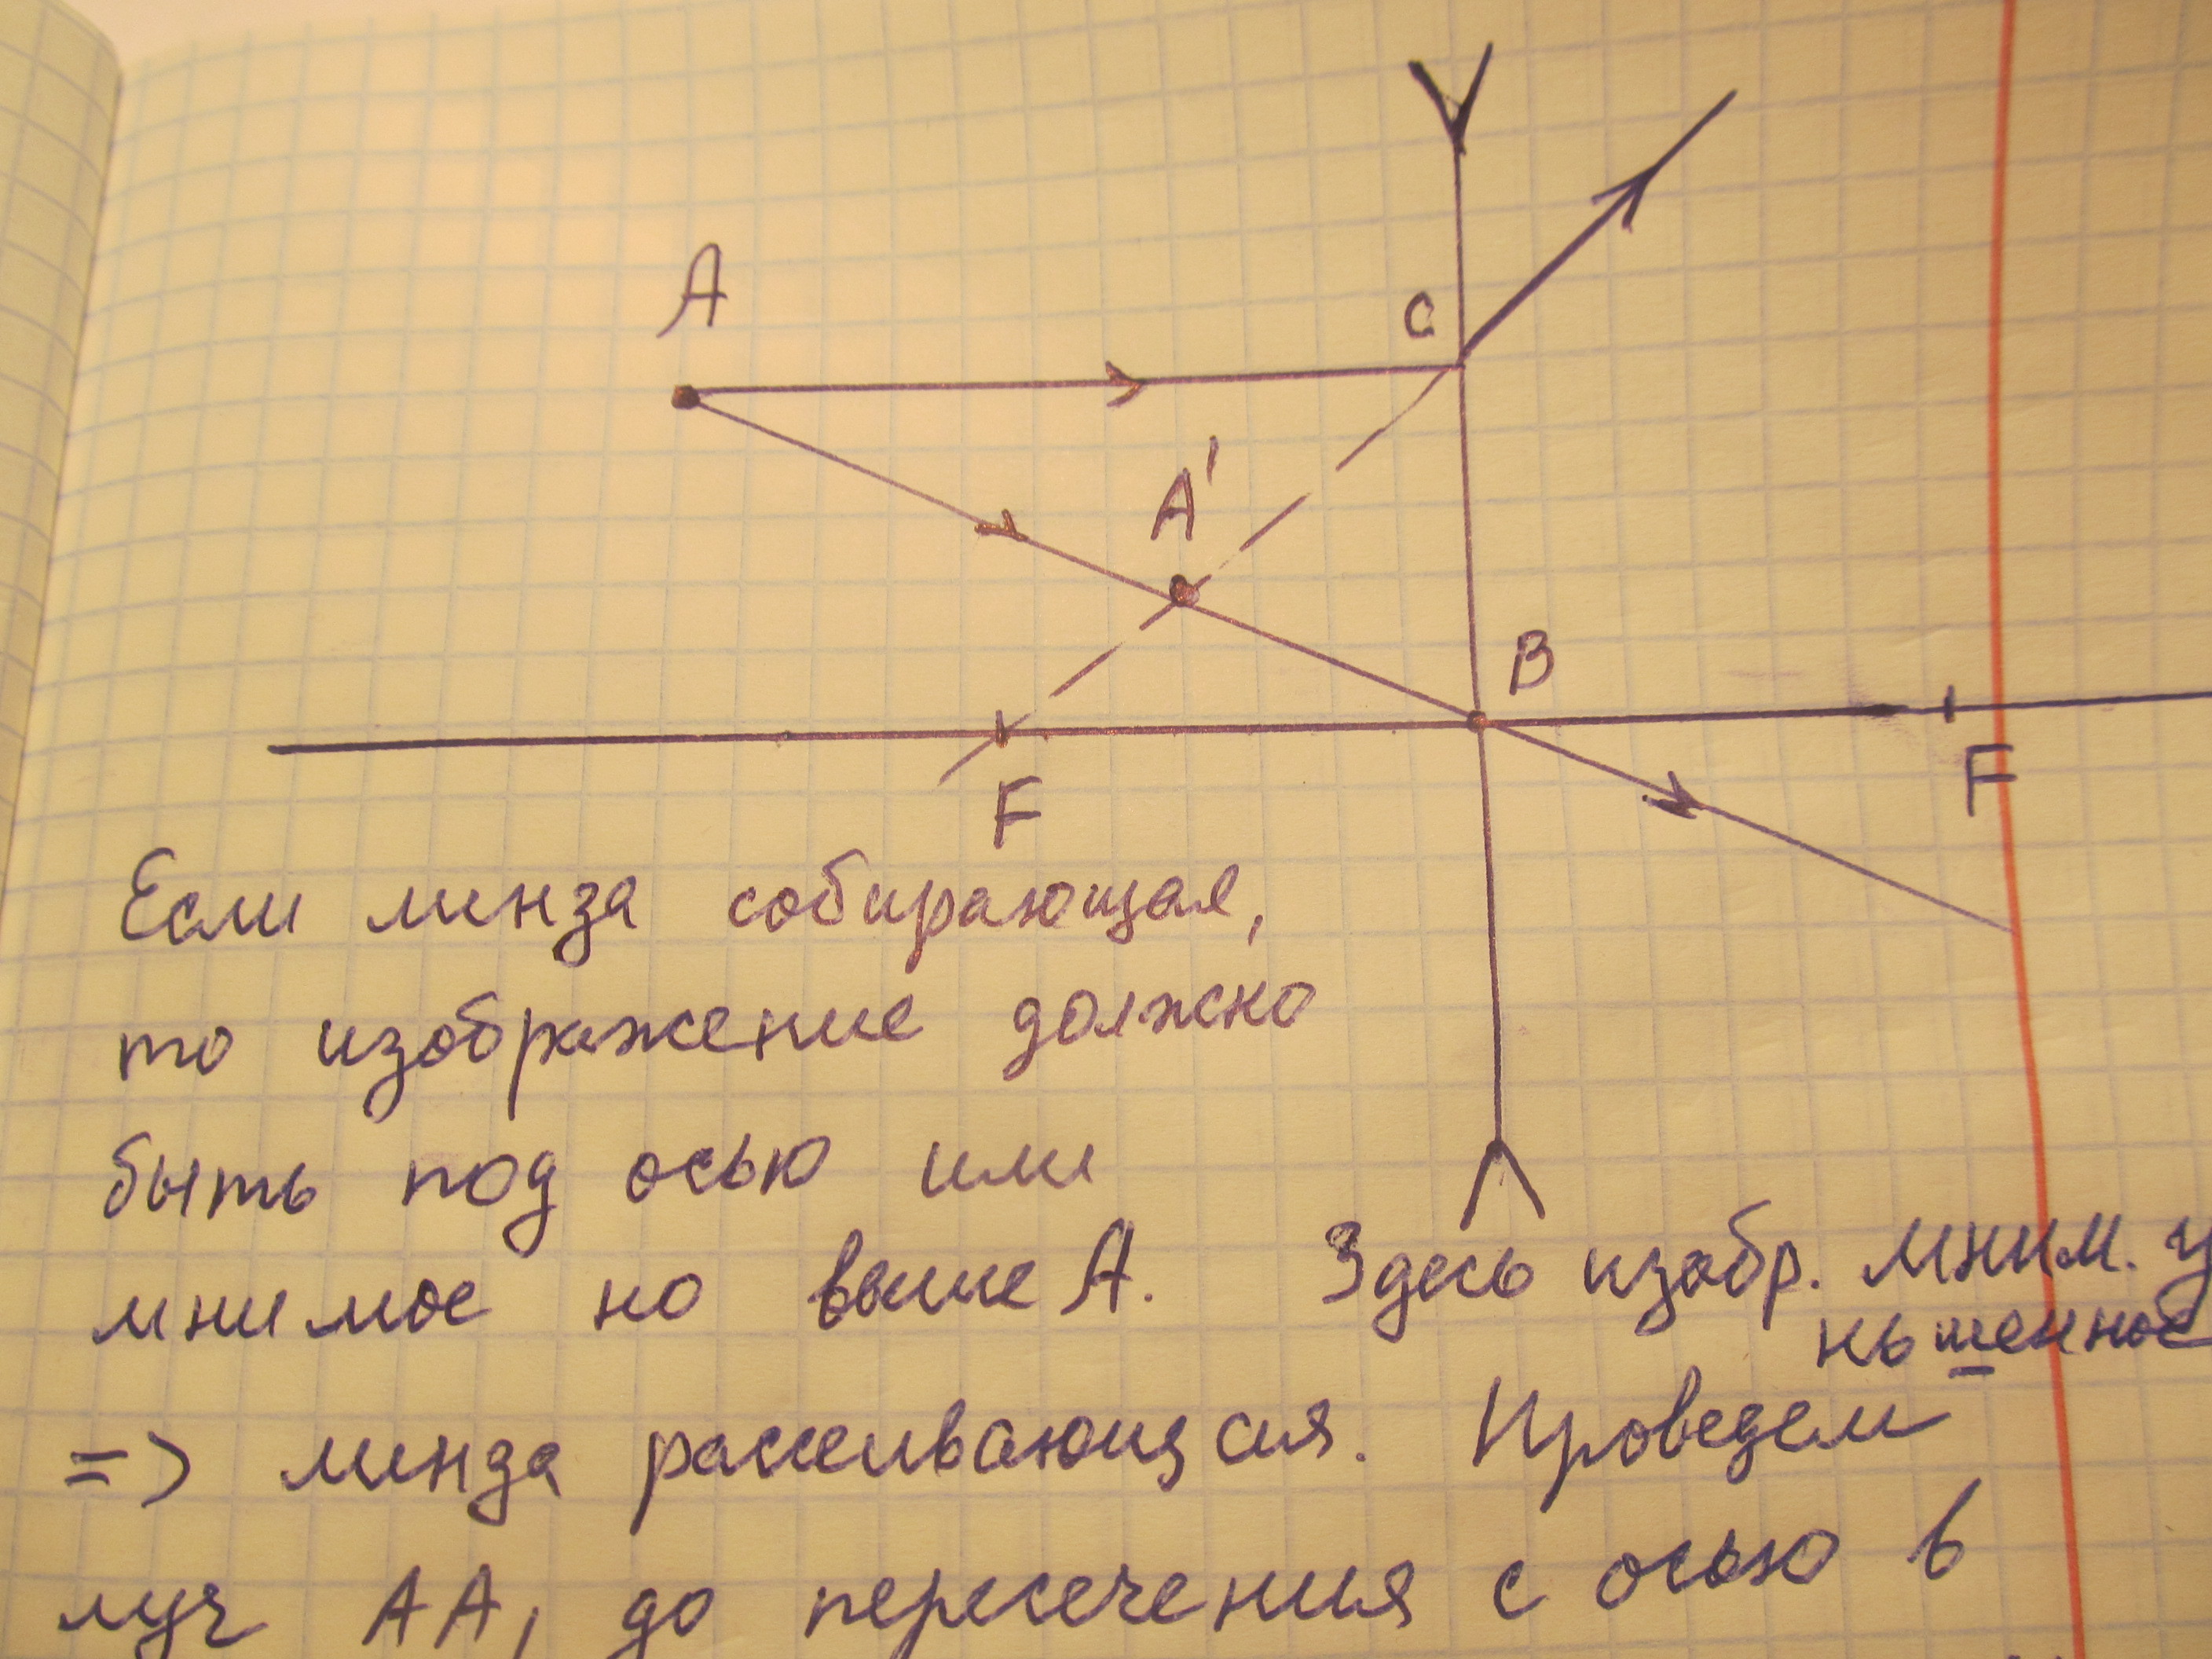 A
C
A'
B
F
F
Если линза собирающая,
то изображение должно
быть под осью или
мнимое но выше А. Здесь изобр. мним. у
ньшенное
=> линза рассеивающая. Проведем
луч АА, до пересечения с осью в